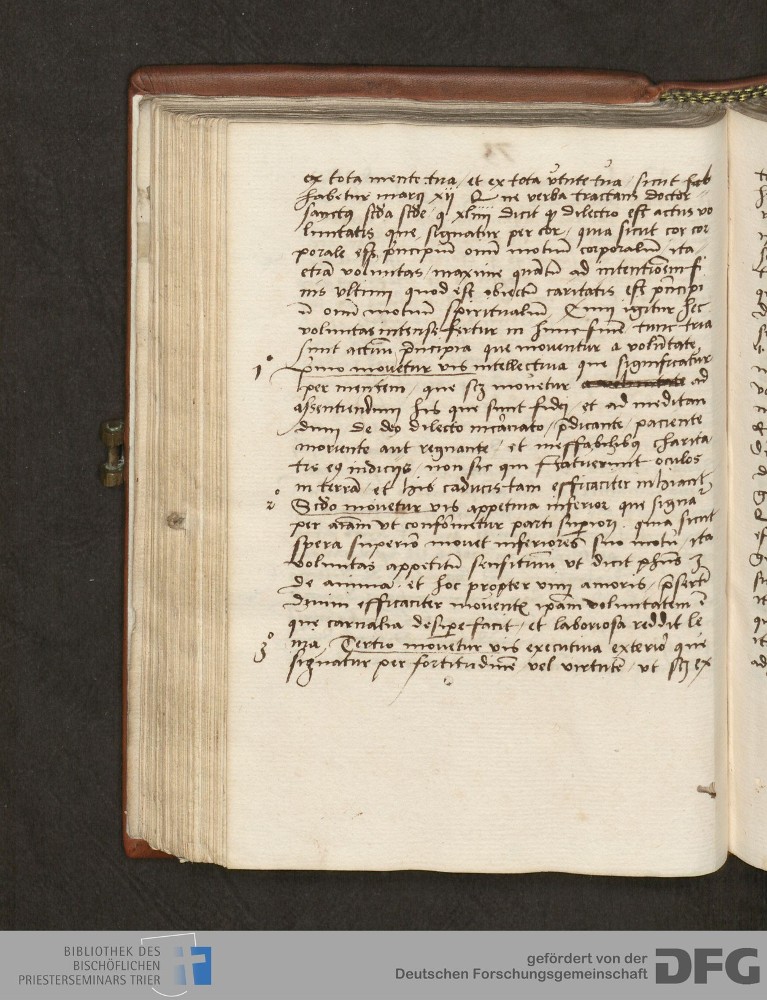 ex tota mente tua / et ex tota v̄tute tua / sicut
habetur marcj xij Que verba tractans doctor
sanctus scd̄a scd̄e · q xliiij dicit qp dilectio est actus vo
luntatis que signatur per cor / quia sicut cor cor
porale est p̄ncipiū oīm motuū corporaliū ita
etiā voluntas / maxime quātū ad intentionem fi
nis vltimi quod est obiectū caritatis est p̄ncipi
ū oīm motuū spiritualiū / Cum igitur hec
voluntas intense fertur in hunc finē tunc tria
sunt actuū p̄ncipia que moventur a volūtate
1º Primo movetur vis intellectiva que significatur
per mentem / que scz movetur ad
assentiendum his que sunt fidei / et ad meditan
dum de deo dilecto incarnato / p̄dicante / paciente
moriente aut regnante / et ineffabilibus charita
tis eius indicijs / non sic qui statuerunt oculos
in terrā / et his caducis tam efficaciter inhiant
2º Scd̄o movetur vis appetitiva inferior que signa
per aīam vt conformetur parti supiori · quia sicut
spera superior movet inferiores suo motu ita
voluntas appetitū sensitivum vt dicit ph̄us 3
de anima · et hoc propter vim amoris / p̄sertī
divini efficaciter moventis ip̄am voluntatem ī
que carnalia desipe facit / et laboriosa reddit le
3º nia / Tertio movetur vis executiva exterior que
signatur per fortitudinē vel virtutē / vt scz ex
BIBLIOTHEK DES
BISCHÖFLICHEN
PRIESTERSEMINARS TRIER
gefördert von der
Deutschen Forschungsgemeinschaft
DFG